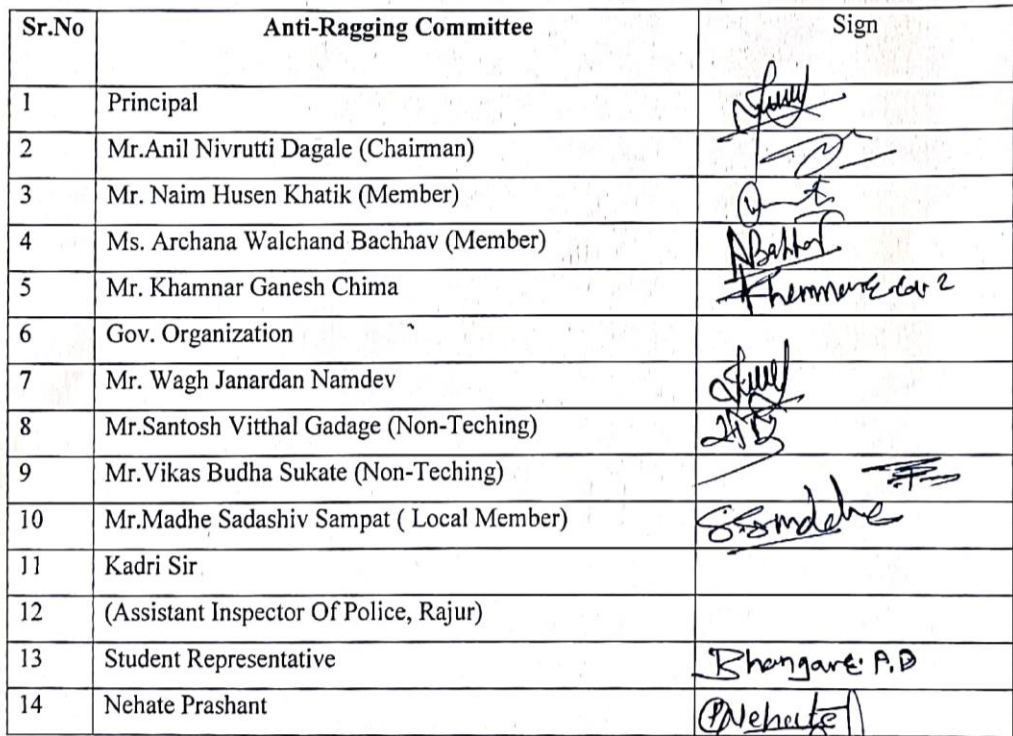 Sr.No Anti-Ragging Committee Sign
1 Principal
2 Mr.Anil Nivrutti Dagale (Chairman)
3 Mr. Naim Husen Khatik (Member)
4 Ms. Archana Walchand Bachhav (Member)
5 Mr. Khamnar Ganesh Chima
6 Gov. Organization
7 Mr. Wagh Janardan Namdev
8 Mr.Santosh Vitthal Gadage (Non-Teching)
9 Mr.Vikas Budha Sukate (Non-Teching)
10 Mr.Madhe Sadashiv Sampat ( Local Member)
11 Kadri Sir
12 (Assistant Inspector Of Police, Rajur)
13 Student Representative Bhangare. A.D
14 Nehate Prashant PNehate